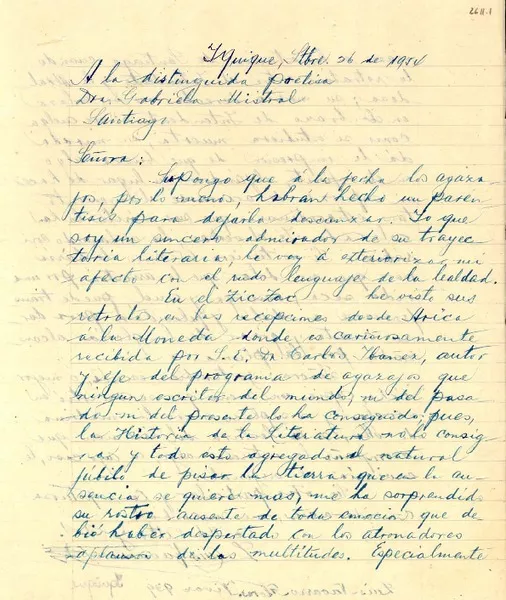 26 II.1
Iquique, Stbre. 26 de 1954
A la distinguida poetisa
Dra. Gabriela Mistral
Santiago
Señora:
Supongo que a la fecha los agaza-
jos, por lo menos, habrán hecho un parén-
tisis para dejarla descanzar. Yo que
soy un sincero admirador de su trayec-
toria literaria, le voy á exteriorizar mi
afecto con el rudo lenguaje de la lealdad.
En el Zic Zac he visto sus
retratos en las recepciones desde Arica
á la Moneda donde es cariñosamente
recibida por S. E. Dr. Carlos Ibañez, autor
y jefe del programa de agazajos que
ningun escritor del mundo, ni del pasa-
do ni del presente lo ha conseguido; pues,
la Historia de la Literatura no lo consig-
na y todo esto agregado al natural
júbilo de pisar la tierra que en la au-
sencia se quiere mas, me ha sorprendido
su rostro ausente de toda emoción que de-
bió haber despertado con los atronadores
aplausos de las multitudes. Especialmente